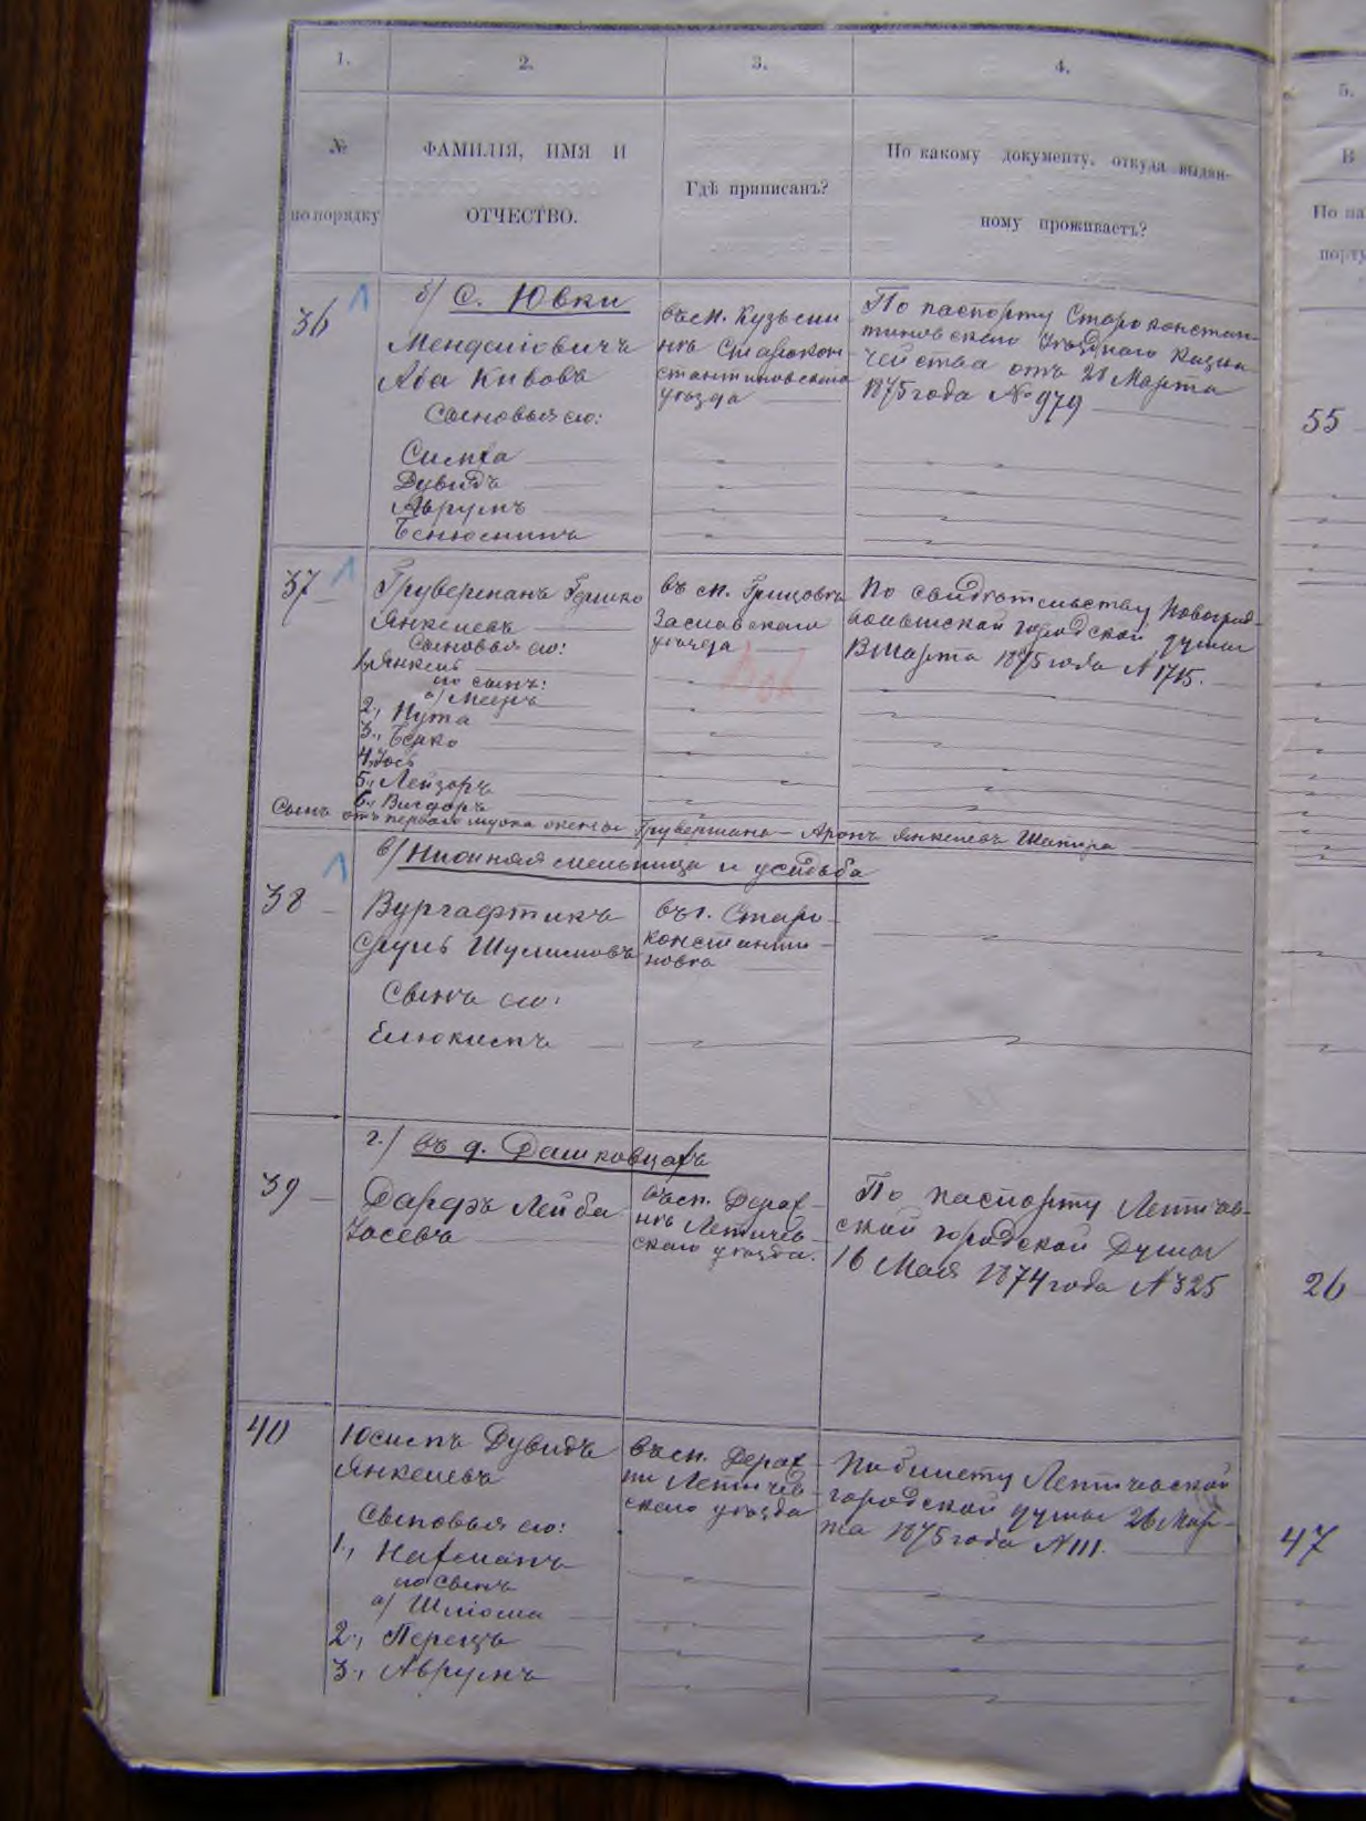 1.
2.
3.
4.
5.
№
по порядку
ФАМИЛІЯ, ИМЯ И
ОТЧЕСТВО.
Гдѣ приписанъ?
По какому документу, откуда выдан-
ному проживаетъ?
В
По па
порту
36
б) С. Ювки
Менделіовичъ
Аба Кивовъ
Сыновья его:
Симха
Дувидъ
Аврумъ
Беньюминъ
въ м. Кузьми
нѣ Старокон
стантиновскаго
уѣзда
По паспорту Староконстан-
тиновскаго Уѣзднаго Казна
чейства отъ 21 Марта
1875 года № 979
55
37
Груверманъ Гершко
Янкелевъ
Сыновья его:
1., Янкель
его сынъ:
а) Мееръ
2., Нута
3., Берко
4., Іось
5., Лейзоръ
6., Вигдоръ
въ м. Грицовѣ
Заславскаго
уѣзда
По свидѣтельству Новоград-
волынской городской думы
Марта 1875 года № 1715.
Сынъ отъ перваго мужа жены Грувермана – Аронъ Янкелевъ Шапира
в) Іюнная мельница и усадьба
38
Вургафтикъ
Сруль Шулимовъ
Сынъ его:
Елюкимъ
въ г. Старо-
константи-
новѣ
г.) въ д. Дашковцахъ
39
Дарфъ Лейба
Іосевъ
въ м. Дераж-
нѣ Летичев-
скаго уѣзда.
По паспорту Летичев-
ской городской Думы
16 Мая 1874 года № 325
26
40
Юсимъ Дувидъ
Янкелевъ
Сыновья его:
1., Нахманъ
его сынъ
а) Шліома
2., Перецъ
3., Аврумъ
въ м. Дераж
ни Летичев-
скаго уѣзда
По билету Летичевской
городской думы 26 Мар-
та 1875 года № 111.
47